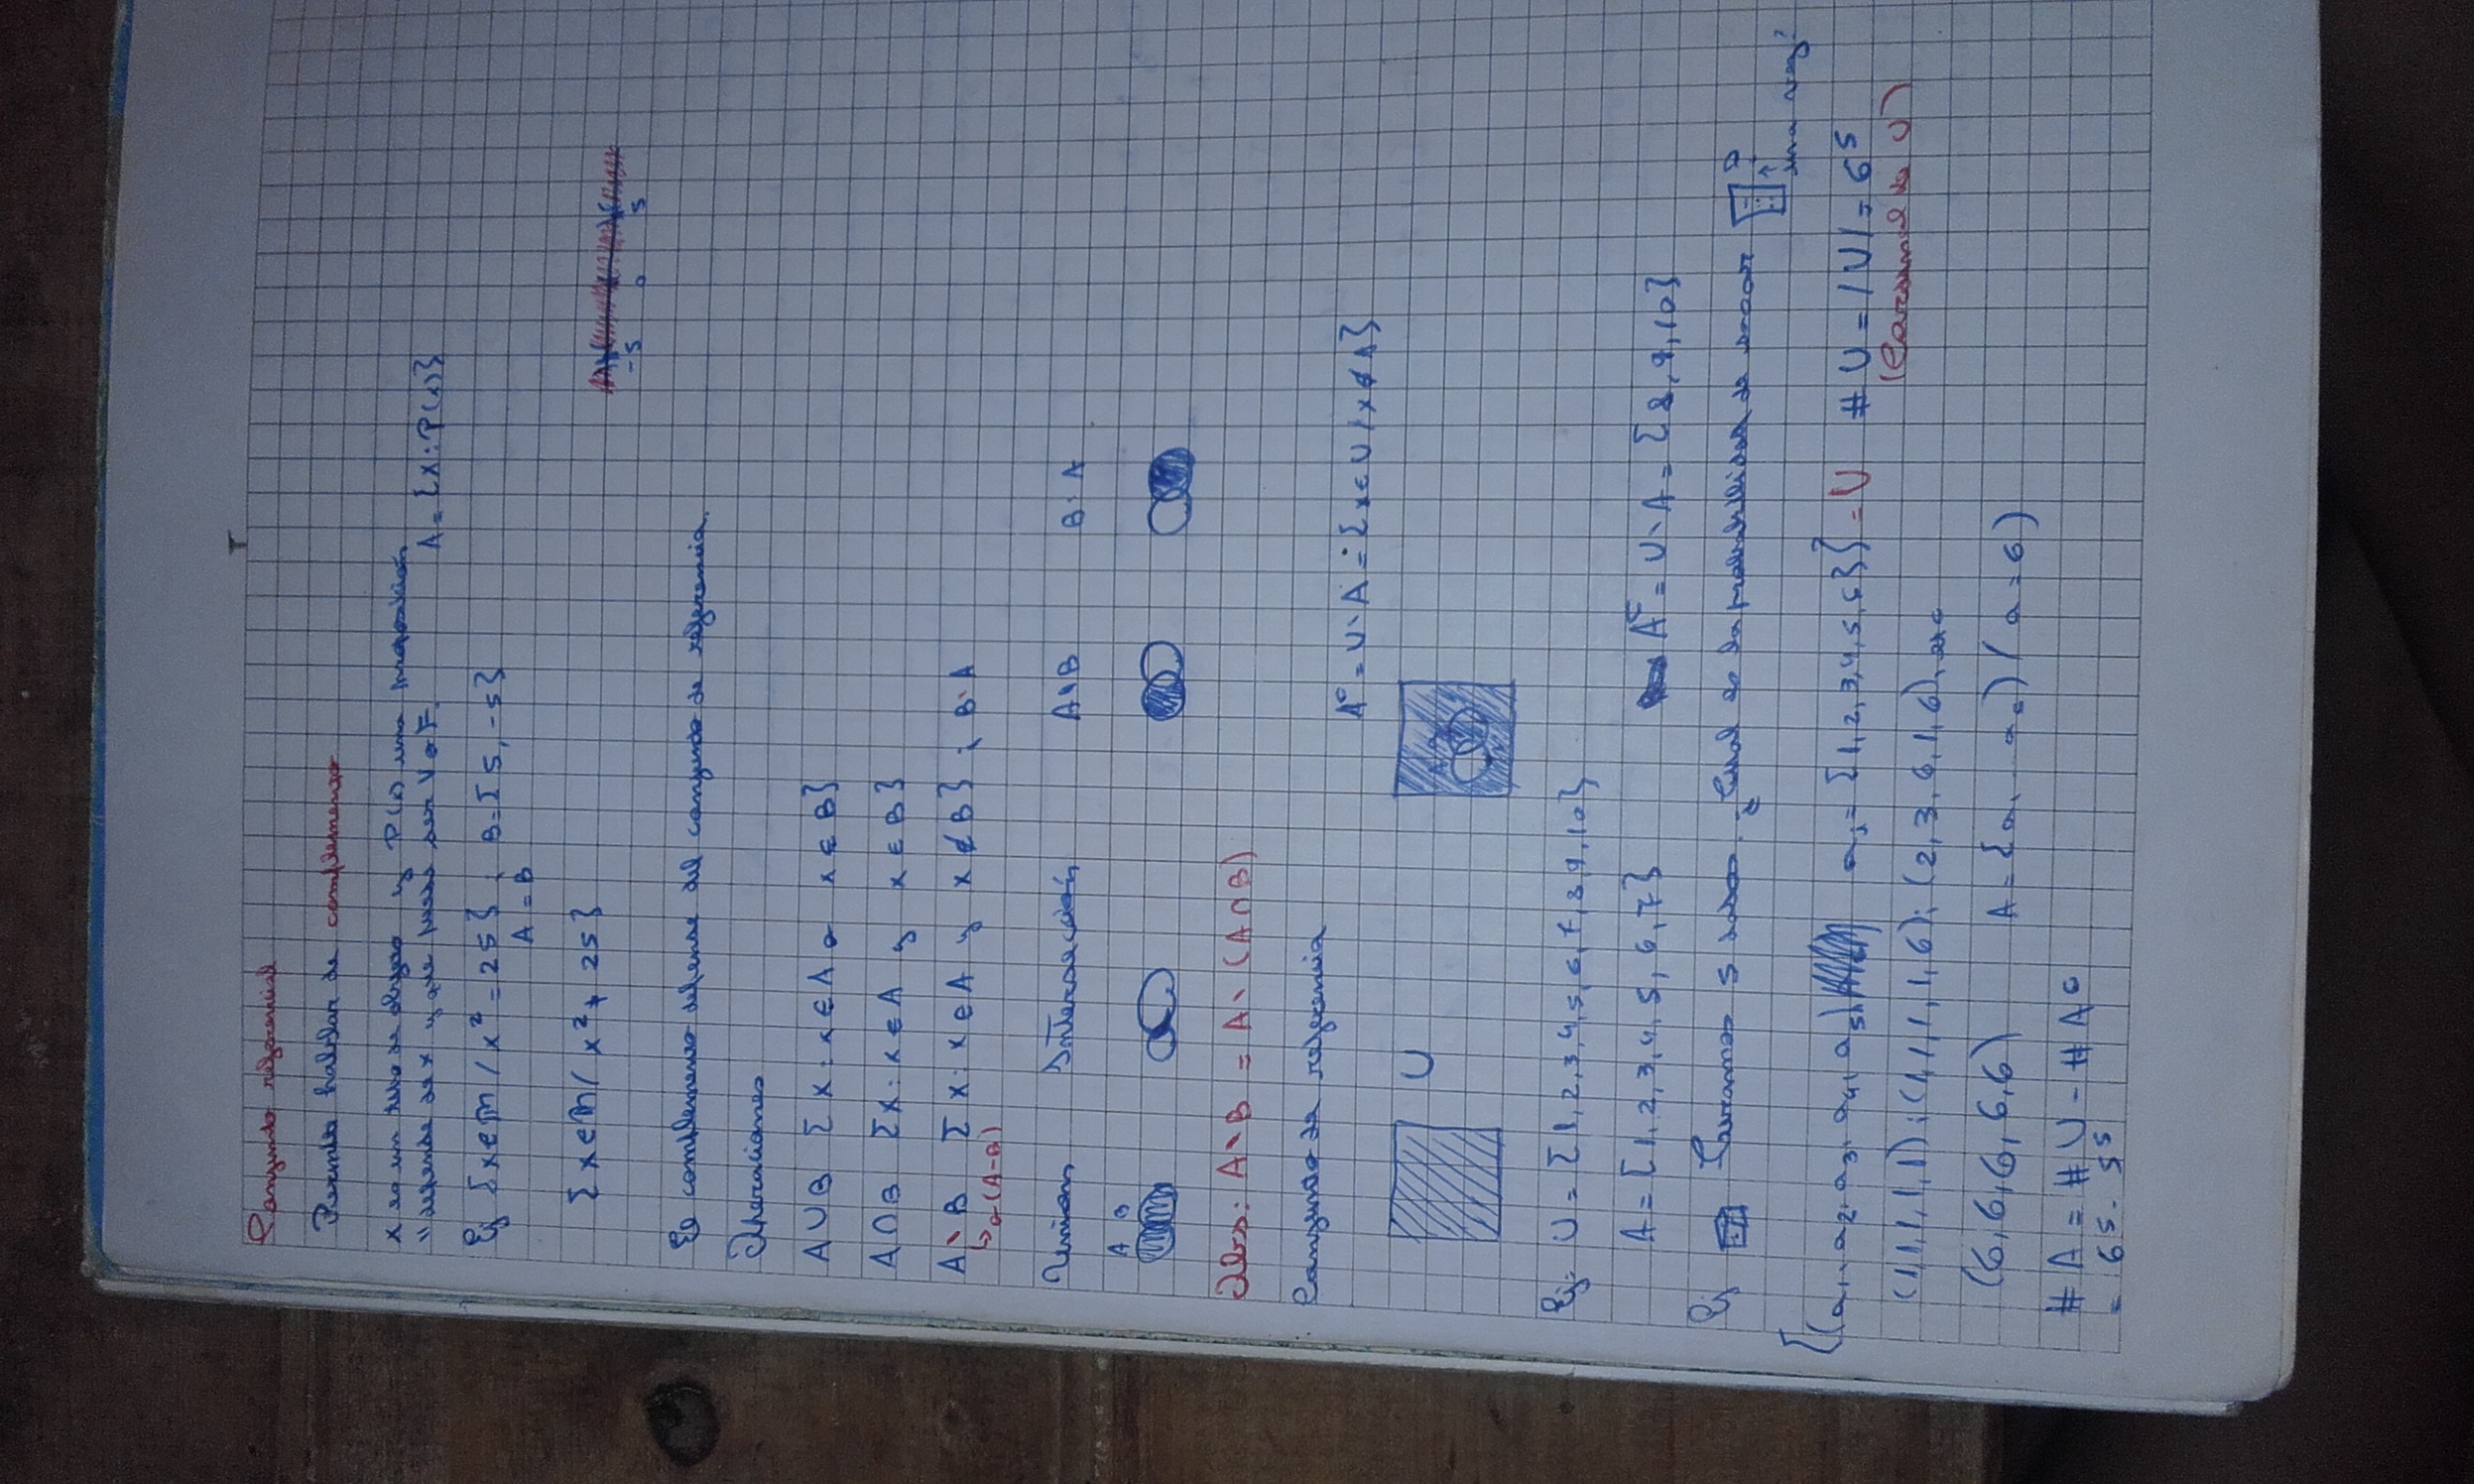 Conjunto referencial
Permite hablar de complemento
x es un tipo de objeto y P(x) una proposición
"depende de x y que puede ser V o F. A = {x : P(x)}
Ej {x ∈ ℝ / x² = 25} ; B = {5, -5}
A = B
{x ∈ ℝ / x² ≠ 25}
-5 0 5
El complemento depende del conjunto de referencia.
Operaciones
A ∪ B {x : x ∈ A o x ∈ B}
A ∩ B {x : x ∈ A y x ∈ B}
A \ B {x : x ∈ A y x ∉ B} ; B \ A
↳ o (A-B)
Union Intersección A \ B B \ A
A B
Obs: A \ B = A \ (A ∩ B)
Conjunto de referencia
Aᶜ = U \ A = {x ∈ U / x ∉ A}
U
A B
Ej: U = {1, 2, 3, 4, 5, 6, 7, 8, 9, 10}
A = {1, 2, 3, 4, 5, 6, 7} Aᶜ = U \ A = {8, 9, 10}
Ej Lanzamos 5 dados ¿Cual es la probabilidad de sacar
una vez?
{(a₁, a₂, a₃, a₄, a₅) a = {1, 2, 3, 4, 5, 6}} = U # U = |U| = 6⁵
(Cardinal de U)
(1,1,1,1,1) ; (1,1,1,1,6) ; (2,3,6,1,6), etc
(6,6,6,6,6) A = {a = 6)
# A = # U - # Aᶜ
= 6⁵ - 5⁵